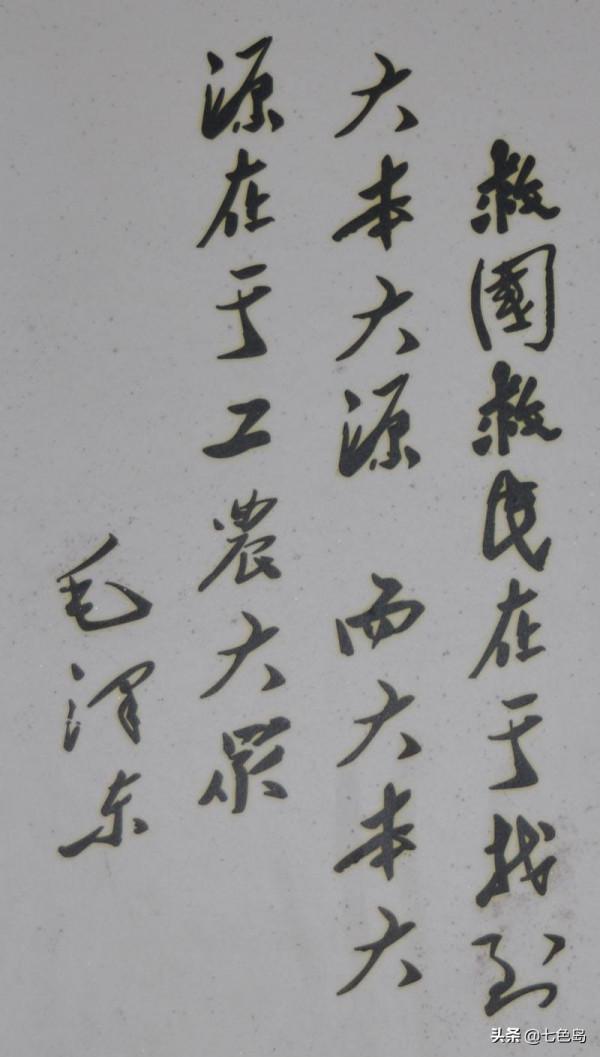 救國救民在于找到
大本大源 而大本大
源在于工農大眾
毛泽东
头条 @七色岛